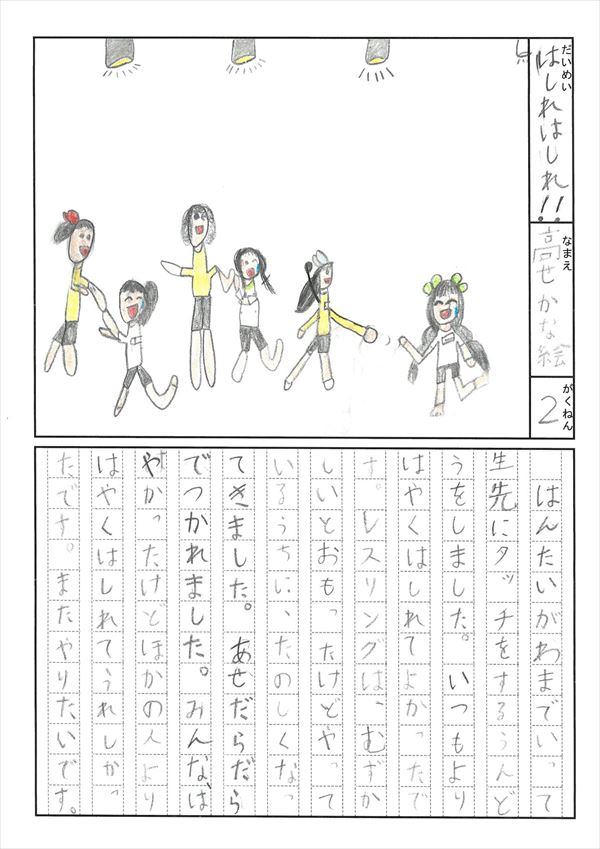 だいめい
はしれはしれ!!
なまえ
高せかな絵
がくねん
2
はんたいがわまでいって
先生にタッチをするうんど
うをしました。いつもより
はやくはしれてよかったで
す。レスリングは、むずか
しいとおもったけどやって
いるうちに、たのしくなっ
てきました。あせだらだら
でつかれました。みんな、は
やかったけどほかの人より
はやくはしれてうれしかっ
たです。またやりたいです。